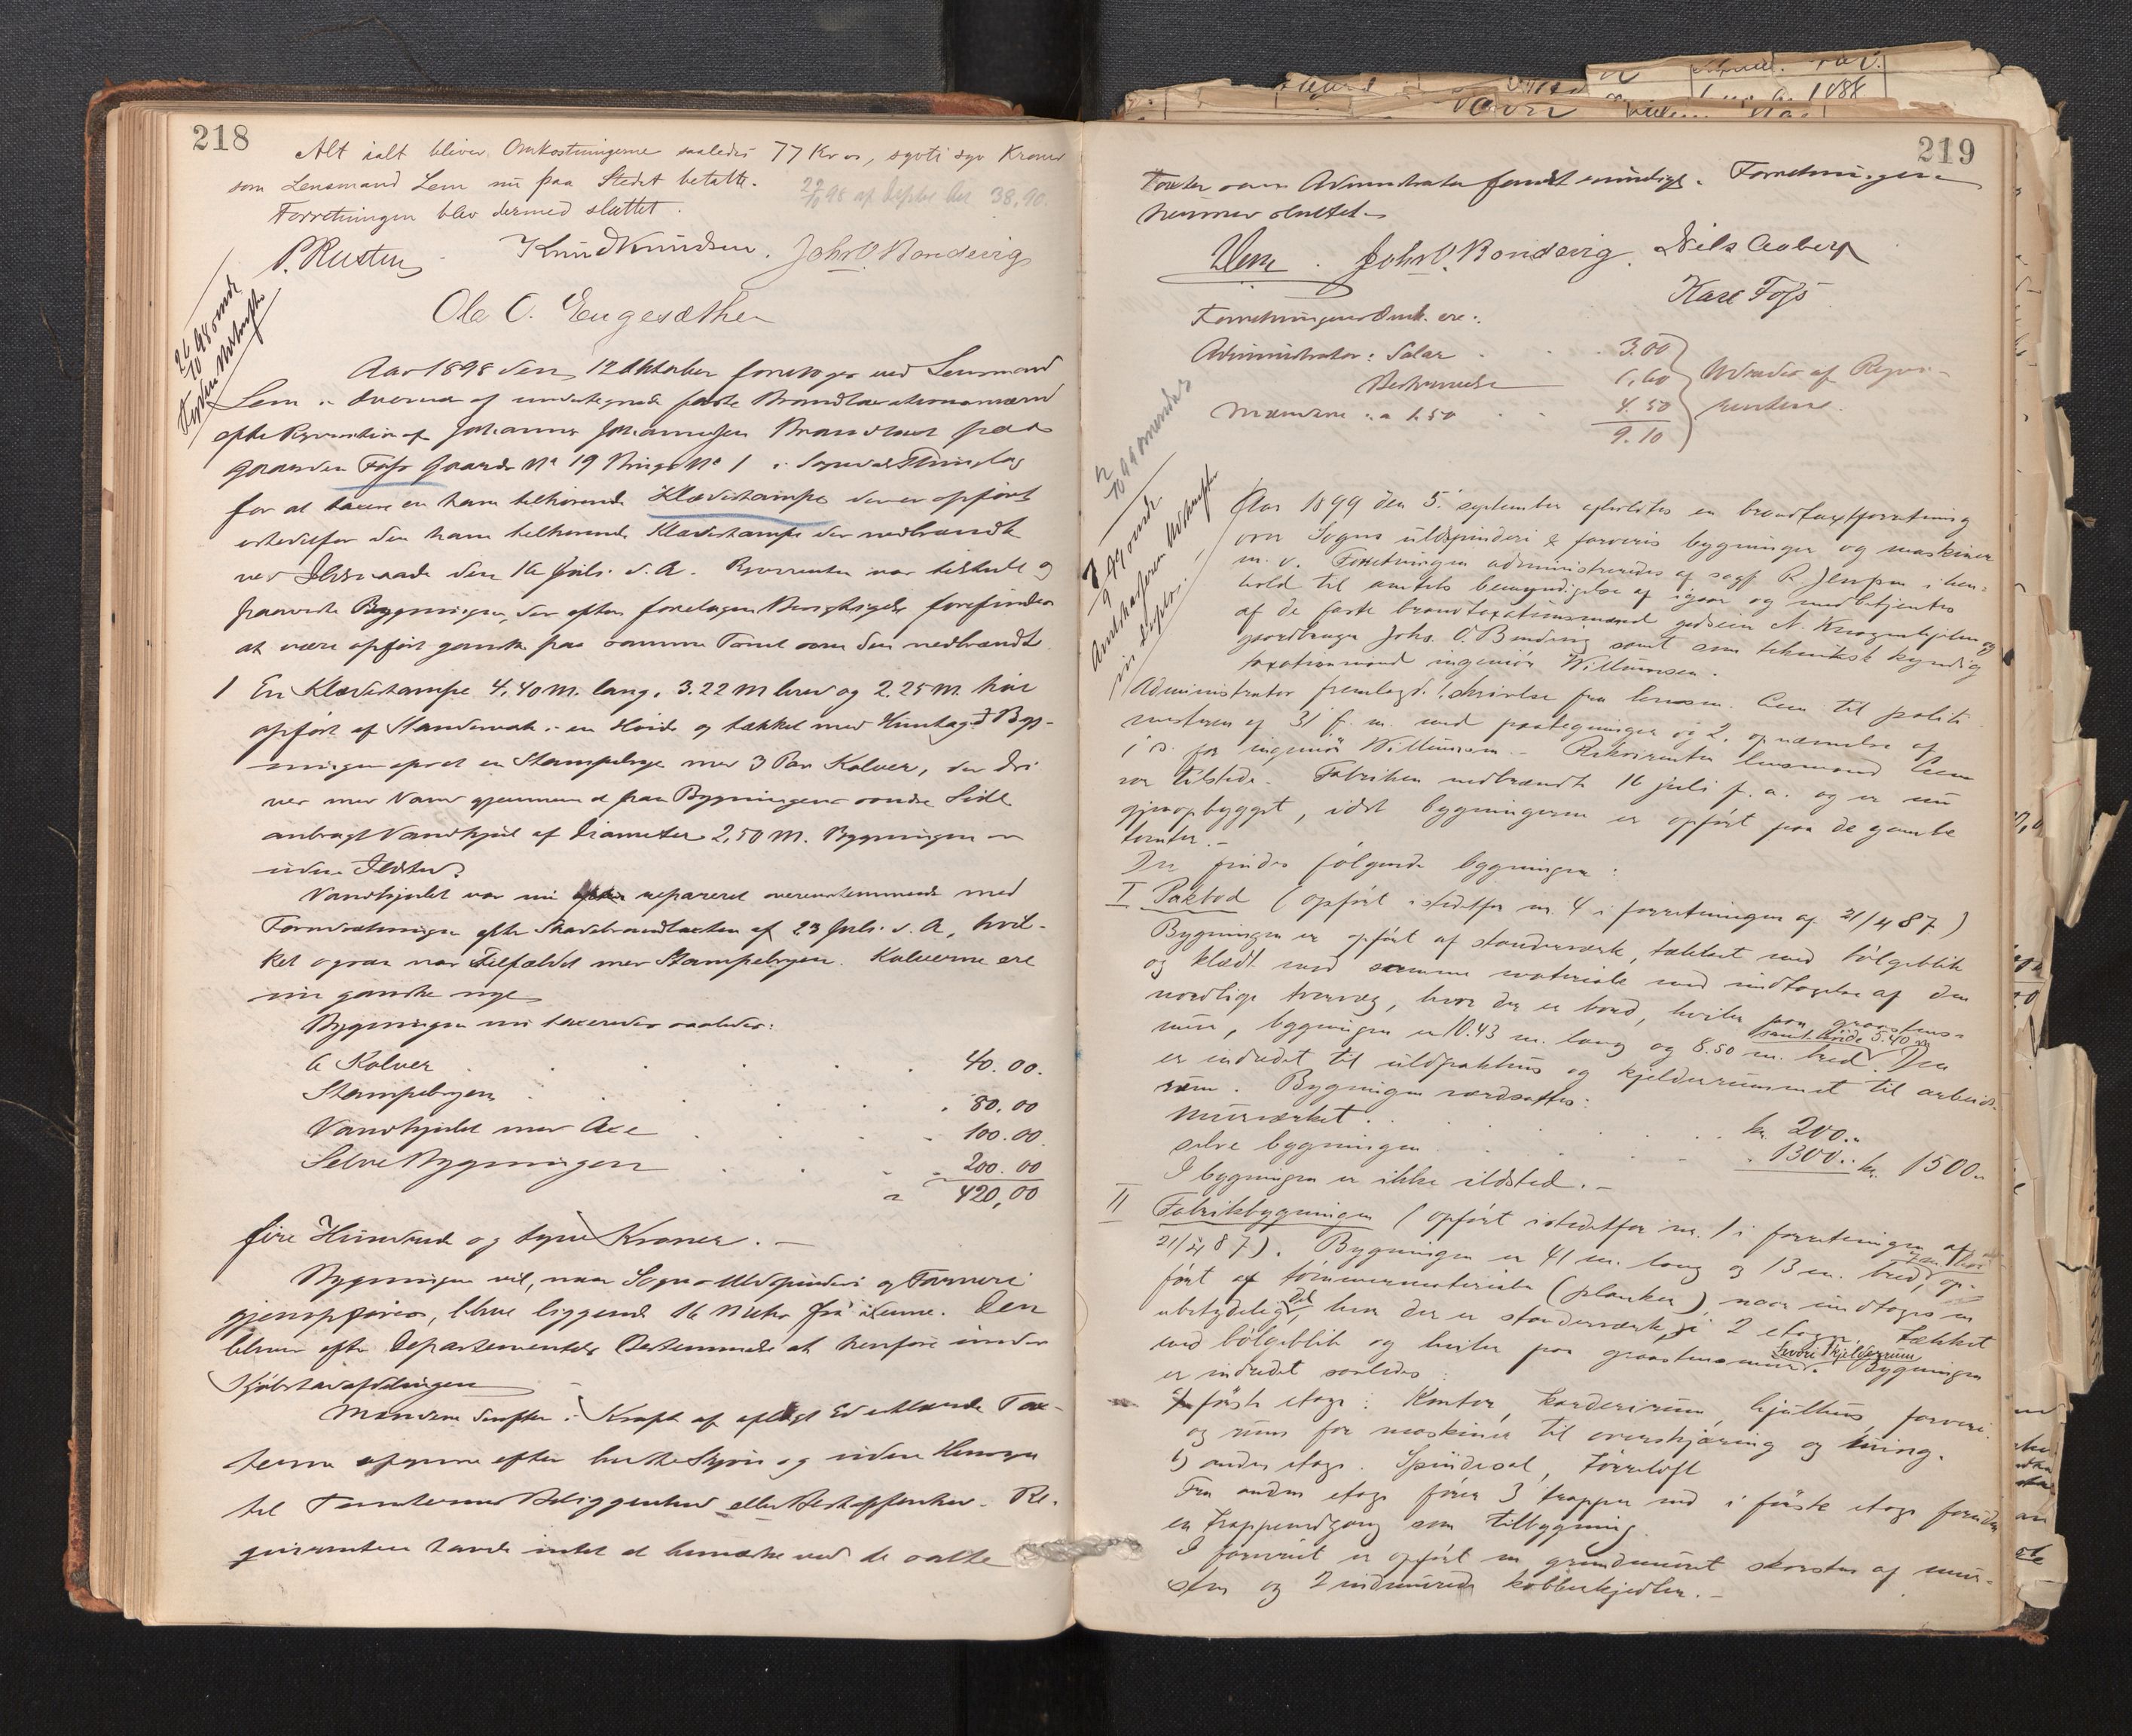 218
Alt ialt bliver Omkostningerne saaledes 77 Kr 00, sytti syv Kroner
som Lensmand Lem nu paa Stedet betalte.
22/10 98 af Deptes Act 38,90.
Forretningen blev dermed sluttet.
P. Rusten Knud Knudsen. Johs O. Bondevig
Ole O. Eugesæther
26/10 98 sendt
Aar 1898 den 12 Oktober foretoges ved Lensmand
Lem i Overvær af undertegnede faste Brandtaxationsmænd
efter Reqvisition af Johannes Johannessen paa
Gaarden Foss Gaards No 19 Brugs No 1 i Sogndals Thinglag
for at taxere en ham tilhørende Klædestampe der er opført
istedetfor den ham tilhørende Klædestampe der nedbrændte
ved Ildsvaade den 16 Juli d. A. Reqvirenten var tilstede og
paaviste Bygningen, der efter foretagen Besigtigelse forefindes
at være opført ganske paa samme Tomt som den nedbrændte.
1 En Klædestampe 4,40 M. lang, 3.22 M bred og 2.25 M. høi
opført af Standerværk i en Høide og tækket med Huntag. I Byg-
ningen er en Stampebrye med 3 Par Kolver, der dri
ves med Vand gjennem et paa Bygningens søndre Side
anbragt Vandhjul af Diameter 2,50 M. Bygningen er
uden Ildsted.
Vandhjulet var nu repareret overensstemmende med
Forudsætningen efter Skadebrandtaxten af 23 Juli d. A, hvil-
ket ogsaa var Tilfældet med Stampebryen. Kolverne ere
nu ganske nye
Bygningen nu taxeredes saaledes:
6 Kolver . . . . 40.00.
Stampebryen . . . . 80.00
Vandhjulet med Axe . . . 100.00
Selve Bygningen . . . 200.00
420,00
fire Hundrede og tyve Kroner. —
Bygningen vil, naar Sogns Uldspinderi og Farveri
gjenopføres, blive liggende 16 Meter fra denne. Den
bliver efter Departementets Bestemmelse at henføre under
Kjøbstadafdelingen
Mændene derefter i Kraft af aflagt Ed erklærede Tax-
terne afgivne efter bedste Skjøn og uden Hensyn
til Tomternes Beliggenhed eller Beskaffenhed. Re-
qvirenten havde intet at bemærke ved de satte
219
Taxter som Administrator fandt . Forretningen
hermed sluttet.
Lem. Johs O. Bondevig. Nils Aaberg
Karl Foss
Forretningens Omk. ere:
Administrator: Salar . . 3.00
1,60
Mændene: a 1.50 . . 4.50
9.10
Udredes af Reqvi-
renten.
7/9 99 sendt
Aar 1899 den 5. september afholdtes en brandtaxtforretning
over Sogns uldspinderi & farveris bygninger og maskiner
m. v. Forretningen administreredes af sagf. R. Jenssen i hen-
hold til amtets bemyndigelse af igaar og medbetjentes
af de faste brandtaxationsmænd N. og
gaardbruger Johs. O. Bondevig samt som teknisk kyndig
taxationsmand ingeniør Willumsen.
Administrator fremlagde: 1. skrivelse fra lensm. Lem til politi-
mesteren af 31 f. m. med paategninger og 2. opnævnelse af
i d. for ingeniør Willumsen. — Rekvirenten lensmand Lem
var tilstede. Fabriken nedbrændte 16 juli f. a. og er nu
gjenopbygget, idet bygningerne er opført paa de gamle
tomter. —
Der findes følgende bygninger:
I Pakbod (opført istedetfor nr. 4 i forretningen af 21/4 87)
Bygningen er opført af standerværk, tækket med bølgeblik
og klædt med samme materiale med undtagelse af den
nordlige tvervæg, hvor der er bord, hviler paa graastens-
mur, bygningen er 10.43 m. lang og 8.50 m. bred samt høide 5.40 m. Den
er indredet til uldpakhus og kjelderrummet til arbeids-
rum. Bygningen værdsattes:
Murværket . . . . kr. 200.-
selve bygningen . . . . 1300.- kr. 1500.-
I bygningen er ikke ildsted. —
II Fabrikbygningen (opført istedetfor nr. 1 i forretningen af
21/4 87). Bygningen er 41 m. lang og 13 m. bred, op-
ført af tømmermateriale (planker), naar undtages en
ubetydelig del, hvor der er standerværk, i 2 etager. Tækket
med bølgeblik og hviler paa graastensmur. Bygningen
er indredet saaledes:
a) første etage: Kontor, karderirum, hjulhus, farveri
og rum for maskiner til overskjæring og .
b) anden etage. Spindesal, Tørreloft
Fra anden etage fører 3 trapper ned i første etage foruden
en trappenedgang som tilbygning.
I farveriet er opført en grundmuret skorsten af mur-
sten og 2 indmurede kobberkjedler. —